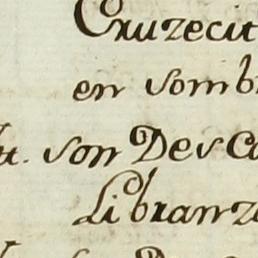 Cruzecit
en somb
tt. son Desca
Libranz